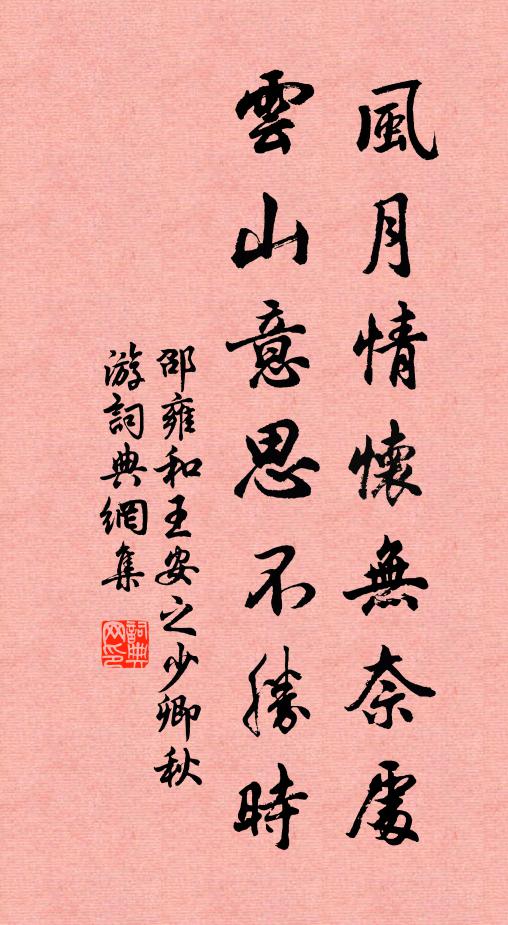 風月情懷無奈處
雲山意思不勝時
邵雍和王安之少卿秋
游詞典網集
詞典
网印